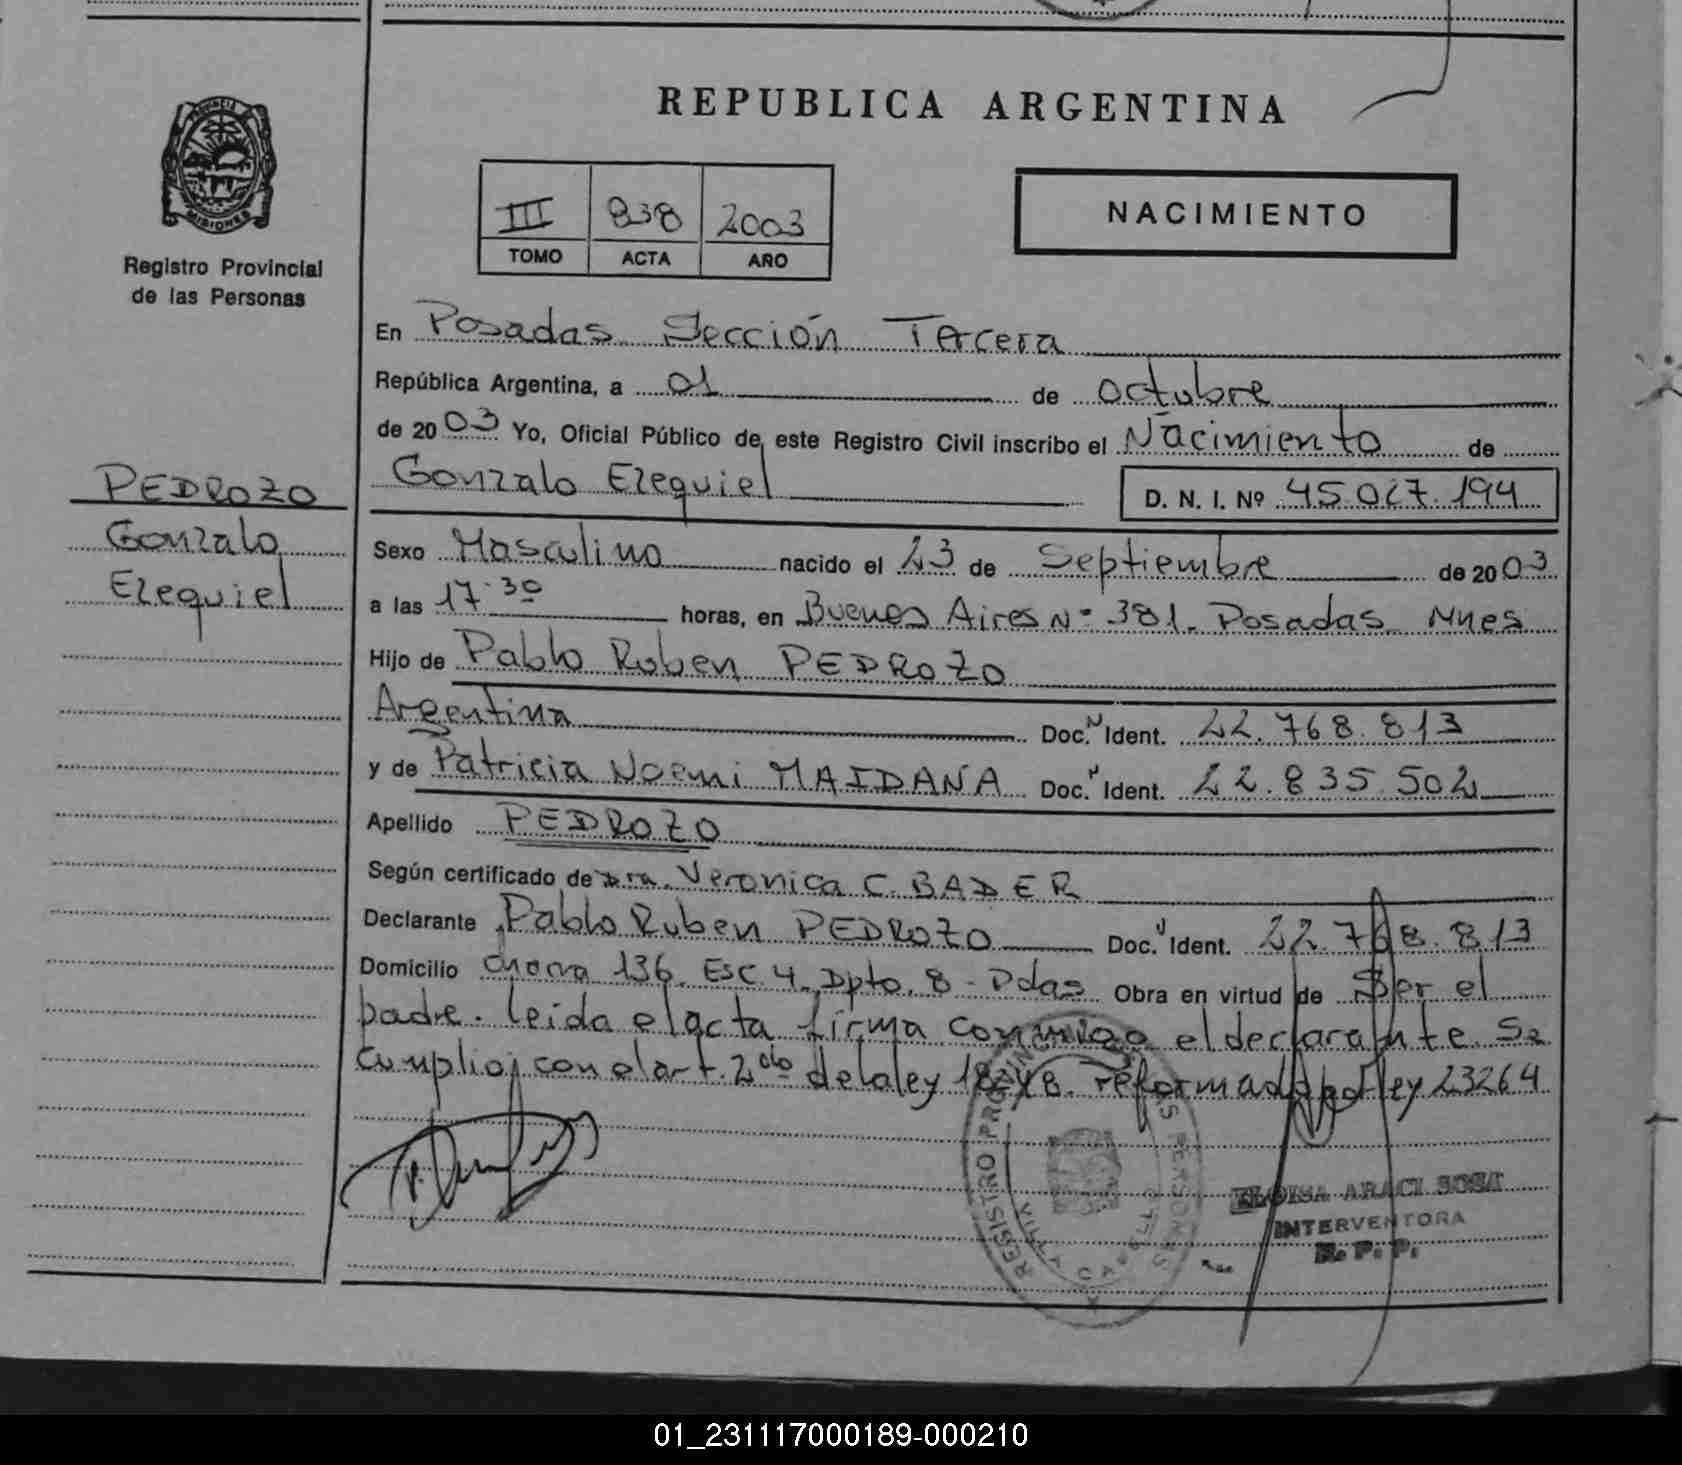 REPUBLICA ARGENTINA
PROVINCIA
MISIONES
Registro Provincial
de las Personas
III 838 2003
TOMO ACTA AÑO
NACIMIENTO
En Posadas Sección Tercera
República Argentina, a 01 de octubre
de 2003 Yo, Oficial Público de este Registro Civil inscribo el Nacimiento de
Gonzalo Ezequiel D. N. I. Nº 45.047.194
PEDROZO
Gonzalo
Ezequiel
Sexo Masculino nacido el 23 de Septiembre de 2003
a las 17.30 horas, en Buenos Aires Nº 381. Posadas Mnes
Hijo de Pablo Ruben PEDROZO
Argentina Doc. Ident. 22.768.813
y de Patricia Noemi MAIDANA Doc. Ident. 22.835.502
Apellido PEDROZO
Según certificado de Dra. Veronica C. BADER
Declarante Pablo Ruben PEDROZO Doc. Ident. 22.768.813
Domicilio 136. Esc. 4. Dpto. 8 - Pdas Obra en virtud de Ser el
padre. leida el acta firma conmigo el declarante. Se
cumplio con el art. 2do de la ley 18248 reformada por ley 23264
REGISTRO PROVINCIAL DE LAS PERSONAS
ELOISA ARACI SOSA
INTERVENTORA
R. P. P.
01_231117000189-000210